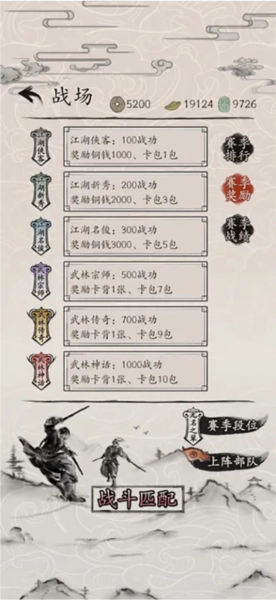 战场 5200 19124 9726
江湖侠客
江湖侠客：100战功
奖励铜钱1000、卡包1包
江湖新秀
江湖新秀：200战功
奖励铜钱2000、卡包3包
江湖名俊
江湖名俊：300战功
奖励铜钱3000、卡包5包
武林宗师
武林宗师：500战功
奖励卡背1张、卡包7包
武林传奇
武林传奇：700战功
奖励卡背1张、卡包9包
武林神话
武林神话：1000战功
奖励卡背1张、卡包10包
赛季排行
赛季奖励
赛季战绩
赛季段位
上阵部队
战斗匹配